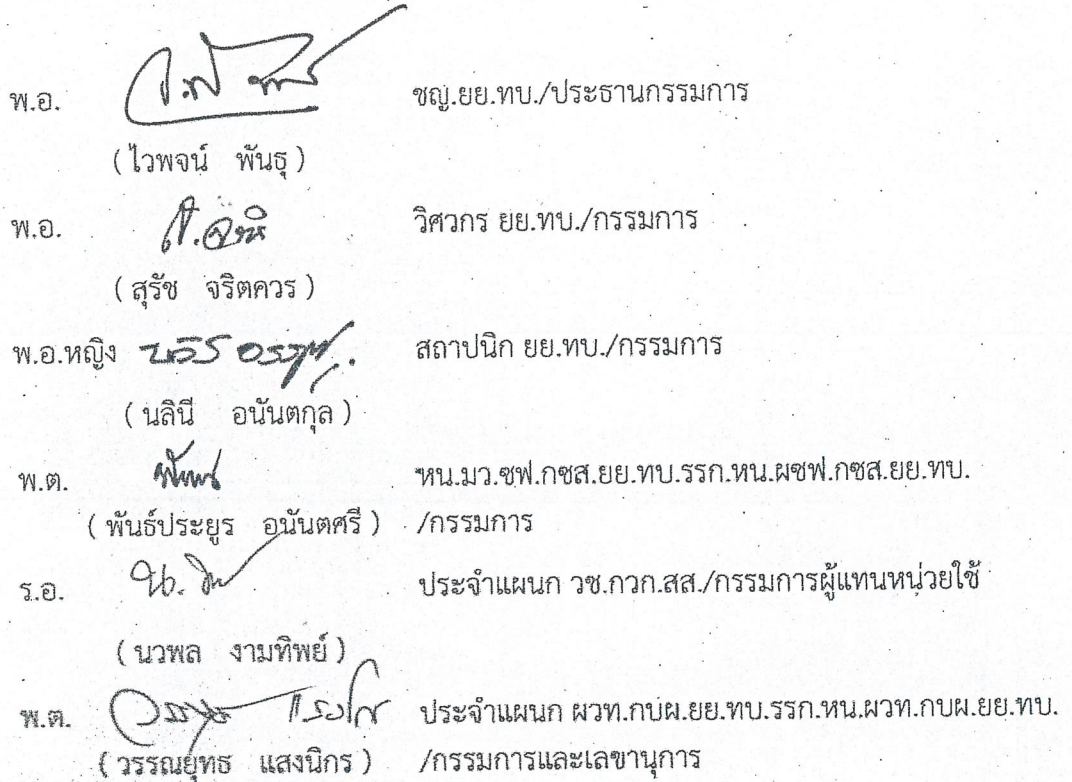 พ.อ. ชญ.ยย.ทบ./ประธานกรรมการ
( ไวพจน์ พันธุ )
พ.อ. วิศวกร ยย.ทบ./กรรมการ
( สุรัช จริตควร )
พ.อ.หญิง สถาปนิก ยย.ทบ./กรรมการ
( นลินี อนันตกุล )
พ.ต. หน.มว.ซฟ.กซส.ยย.ทบ.รรก.หน.ผซฟ.กซส.ยย.ทบ.
( พันธ์ประยูร อนันตศรี ) /กรรมการ
ร.อ. ประจำแผนก วช.กวก.สส./กรรมการผู้แทนหน่วยใช้
( นวพล งามทิพย์ )
พ.ต. ประจำแผนก ผวท.กบผ.ยย.ทบ.รรก.หน.ผวท.กบผ.ยย.ทบ.
( วรรณยุทธ แสงนิกร ) /กรรมการและเลขานุการ